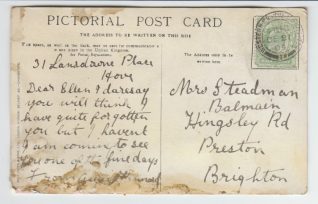 PICTORIAL POST CARD
THE ADDRESS TO BE WRITTEN ON THIS SIDE
The address only to be
written here.
31 Lansdowne Place
Hove
Dear Ellen I daresay
you will think I
have quite forgotten
you but I havent
I am comin to see
you one of these days
Mrs Steadman
Balmain
Hingsley Rd
Preston
Brighton